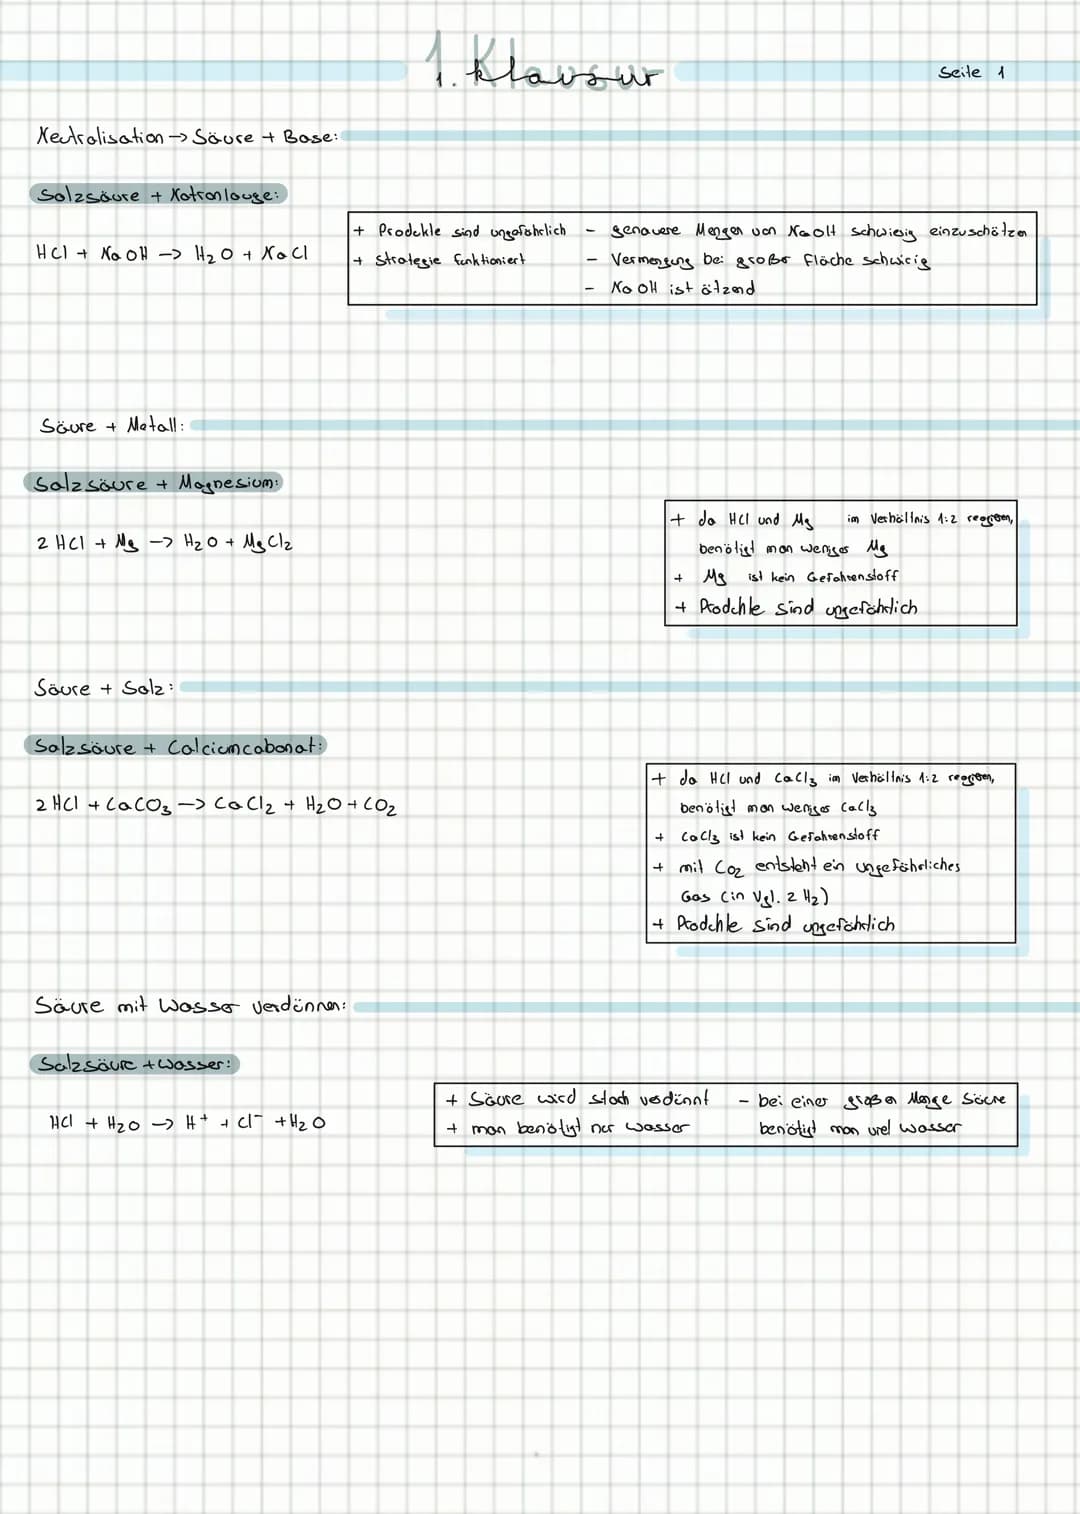 1. Klausur
Seite 1
Neutralisation → Säure + Base:
Salzsäure + Natronlauge:
HCl + NaOH → H₂O + NaCl
+ Produkte sind ungefährlich
+ Strategie funktioniert
- genauere Mengen von NaOH schwierig einzuschätzen
- Vermengung bei großer Fläche schwierig
- NaOH ist ätzend
Säure + Metall:
Salzsäure + Magnesium:
2 HCl + Mg → H₂O + MgCl₂
+ da HCl und Mg im Verhältnis 1:2 reagieren,
benötigt man weniger Mg
+ Mg ist kein Gefahrenstoff
+ Produkte sind ungefährlich
Säure + Salz:
Salzsäure + Calciumcabonat:
2 HCl + CaCO₃ → CaCl₂ + H₂O + CO₂
+ da HCl und CaCl₃ im Verhältnis 1:2 reagieren,
benötigt man weniger CaCl₃
+ CaCl₃ ist kein Gefahrenstoff
+ mit CO₂ entsteht ein ungefährliches
Gas (in Vgl. z H₂)
+ Produkte sind ungefährlich
Säure mit Wasser verdünnen:
Salzsäure + Wasser:
HCl + H₂O → H⁺ + Cl⁻ + H₂O
+ Säure wird stark verdünnt
+ man benötigt nur Wasser
- bei einer großen Menge Säure
benötigt man viel Wasser